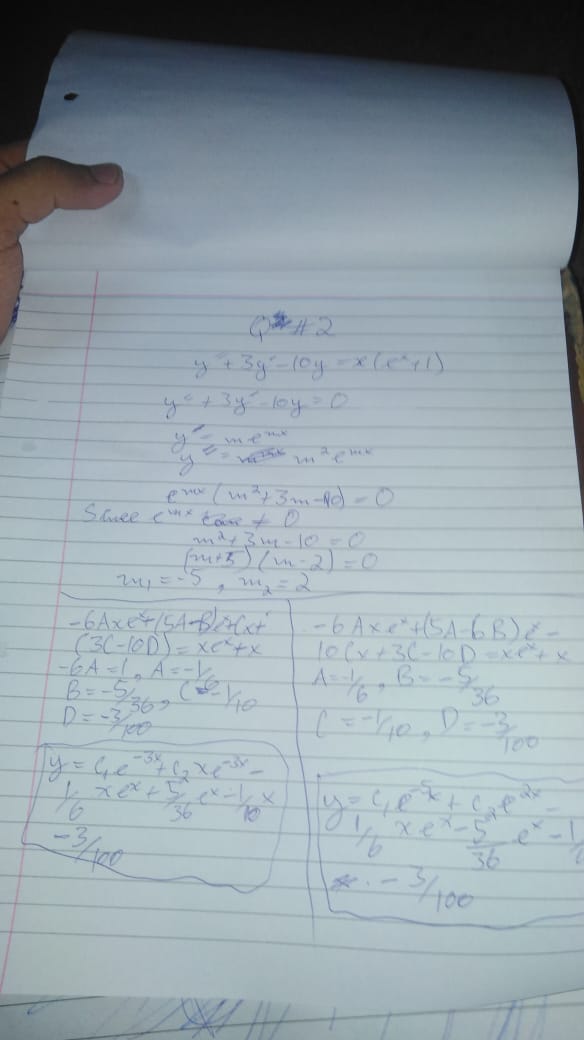 Q #2
y'' + 3y' - 10y = x(e^x + 1)
y'' + 3y' - 10y = 0
y' = me^mx
y'' = m^2 e^mx
e^mx (m^2 + 3m - 10) = 0
Since e^mx ≠ 0
m^2 + 3m - 10 = 0
(m+5)(m-2) = 0
m1 = -5, m2 = 2
-6Axe^x + (5A-B)e^x Cx +
(3C-10D) = xe^x + x
-6A = 1, A = -1/6
B = -5/36, C = -1/10
D = -3/100
y = c1e^-3x + c2xe^-3x -
1/6 xe^x + 5/36 e^x - 1/10 x
-3/100
-6Axe^x + (5A-6B)e^x -
10Cx + 3C-10D = xe^x + x
A = -1/6, B = -5/36
C = -1/10, D = -3/100
y = c1e^-5x + c2e^2x -
1/6 xe^x - 5/36 e^x - 1/
- 3/100